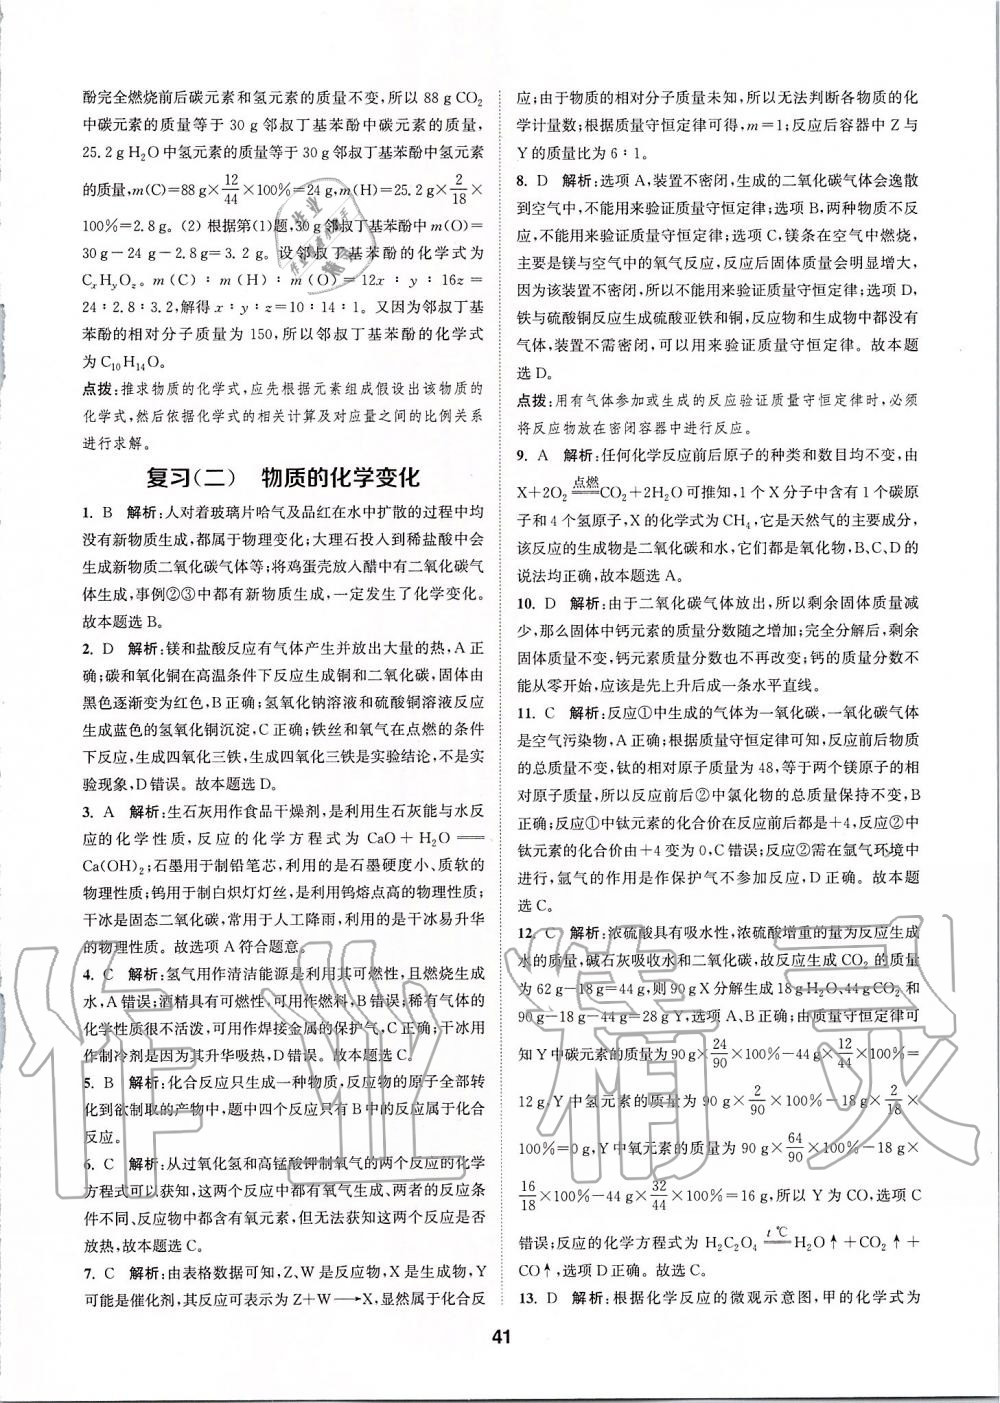 酚完全燃烧前后碳元素和氢元素的质量不变,所以 88 g CO₂
中碳元素的质量等于 30 g 邻叔丁基苯酚中碳元素的质量,
25.2 g H₂O 中氢元素的质量等于 30 g 邻叔丁基苯酚中氢元素
的质量,m(C)=88 g×12/44×100%=24 g,m(H)=25.2 g×2/18×
100%=2.8 g。(2) 根据第(1)题,30 g 邻叔丁基苯酚中 m(O)=
30 g-24 g-2.8 g=3.2 g。设邻叔丁基苯酚的化学式为
CₓHᵧO_z。m(C)∶m(H)∶m(O)=12x∶y∶16z=
24∶2.8∶3.2,解得 x∶y∶z=10∶14∶1。又因为邻叔丁基
苯酚的相对分子质量为 150,所以邻叔丁基苯酚的化学式
为 C₁₀H₁₄O。
点拨:推求物质的化学式,应先根据元素组成假设出该物质的
化学式,然后依据化学式的相关计算及对应量之间的比例关系
进行求解。
复习(二) 物质的化学变化
1. B 解析:人对着玻璃片哈气及品红在水中扩散的过程中均
没有新物质生成,都属于物理变化;大理石投入到稀盐酸中会
生成新物质二氧化碳气体等;将鸡蛋壳放入醋中有二氧化碳气
体生成,事例②③中都有新物质生成,一定发生了化学变化。
故本题选 B。
2. D 解析:镁和盐酸反应有气体产生并放出大量的热,A 正
确;碳和氧化铜在高温条件下反应生成铜和二氧化碳,固体由
黑色逐渐变为红色,B 正确;氢氧化钠溶液和硫酸铜溶液反应
生成蓝色的氢氧化铜沉淀,C 正确;铁丝和氧气在点燃的条件
下反应,生成四氧化三铁,生成四氧化三铁是实验结论,不是实
验现象,D 错误。故本题选 D。
3. A 解析:生石灰用作食品干燥剂,是利用生石灰能与水反
应的化学性质,反应的化学方程式为 CaO+H₂O══
Ca(OH)₂;石墨用于制铅笔芯,利用的是石墨硬度小、质软的
物理性质;钨用于制白炽灯灯丝,是利用钨熔点高的物理性质;
干冰是固态二氧化碳,常用于人工降雨,利用的是干冰易升华
的物理性质。故选项 A 符合题意。
4. C 解析:氢气用作清洁能源是利用其可燃性,且燃烧生成
水,A 错误;酒精具有可燃性,可用作燃料,B 错误;稀有气体的
化学性质很不活泼,可用作焊接金属的保护气,C 正确;干冰用
作制冷剂是因为其升华吸热,D 错误。故本题选 C。
5. B 解析:化合反应只生成一种物质,反应物的原子全部转
化到欲制取的产物中,题中四个反应只有 B 中的反应属于化合
反应。
6. C 解析:从过氧化氢和高锰酸钾制氧气的两个反应的化学
方程式可以获知,这两个反应中都有氧气生成、两者的反应条
件不同、反应物中都含有氧元素,但无法获知这两个反应是否
放热,故本题选 C。
7. C 解析:由表格数据可知,Z、W 是反应物,X 是生成物,Y
可能是催化剂,其反应可表示为 Z+W→X,显然属于化合反
应;由于物质的相对分子质量未知,所以无法判断各物质的化
学计量数;根据质量守恒定律可得,m=1;反应后容器中 Z 与
Y 的质量比为 6∶1。
8. D 解析:选项 A,装置不密闭,生成的二氧化碳气体会逸散
到空气中,不能用来验证质量守恒定律;选项 B,两种物质不反
应,不能用来验证质量守恒定律;选项 C,镁条在空气中燃烧,
主要是镁与空气中的氧气反应,反应后固体质量会明显增大,
因为该装置不密闭,所以不能用来验证质量守恒定律;选项 D,
铁与硫酸铜反应生成硫酸亚铁和铜,反应物和生成物中都没有
气体,装置不需密闭,可以用来验证质量守恒定律。故本题
选 D。
点拨:用有气体参加或生成的反应验证质量守恒定律时,必须
将反应物放在密闭容器中进行反应。
9. A 解析:任何化学反应前后原子的种类和数目均不变,由
X+2O₂ 点燃══ CO₂+2H₂O 可推知,1 个 X 分子中含有 1 个碳原
子和 4 个氢原子,X 的化学式为 CH₄,它是天然气的主要成分,
该反应的生成物是二氧化碳和水,它们都是氧化物,B、C、D 的
说法均正确,故本题选 A。
10. D 解析:由于二氧化碳气体放出,所以剩余固体质量减
少,那么固体中钙元素的质量分数随之增加;完全分解后,剩余
固体质量不变,钙元素质量分数也不再改变;钙的质量分数不
能从零开始,应该是先上升后成一条水平直线。
11. C 解析:反应①中生成的气体为一氧化碳,一氧化碳气体
是空气污染物,A 正确;根据质量守恒定律可知,反应前后物质
的总质量不变,钛的相对原子质量为 48,等于两个镁原子的相
对原子质量,所以反应前后②中氯化物的总质量保持不变,B
正确;反应①中钛元素的化合价在反应前后都是+4,反应②中
钛元素的化合价由+4 变为 0,C 错误;反应②需在氩气环境中
进行,氩气的作用是作保护气不参加反应,D 正确。故本题
选 C。
12. C 解析:浓硫酸具有吸水性,浓硫酸增重的量为反应生成
水的质量,碱石灰吸收水和二氧化碳,故反应生成 CO₂ 的质量
为 62 g-18 g=44 g,则 90 g X 分解生成 18 g H₂O、44 g CO₂ 和
90 g-18 g-44 g=28 g Y,选项 A、B 正确;由质量守恒定律可
知 Y 中碳元素的质量为 90 g×24/90×100%-44 g×12/44×100%=
12 g,Y 中氢元素的质量为 90 g×2/90×100%-18 g×2/18×
100%=0 g,Y 中氧元素的质量为 90 g×64/90×100%-18 g×
16/18×100%-44 g×32/44×100%=16 g,所以 Y 为 CO,选项 C
错误;反应的化学方程式为 H₂C₂O₄ t ℃══ H₂O↑+CO₂↑+
CO↑,选项 D 正确。故选 C。
13. D 解析:根据化学反应的微观示意图,甲的化学式为
41
作业精灵